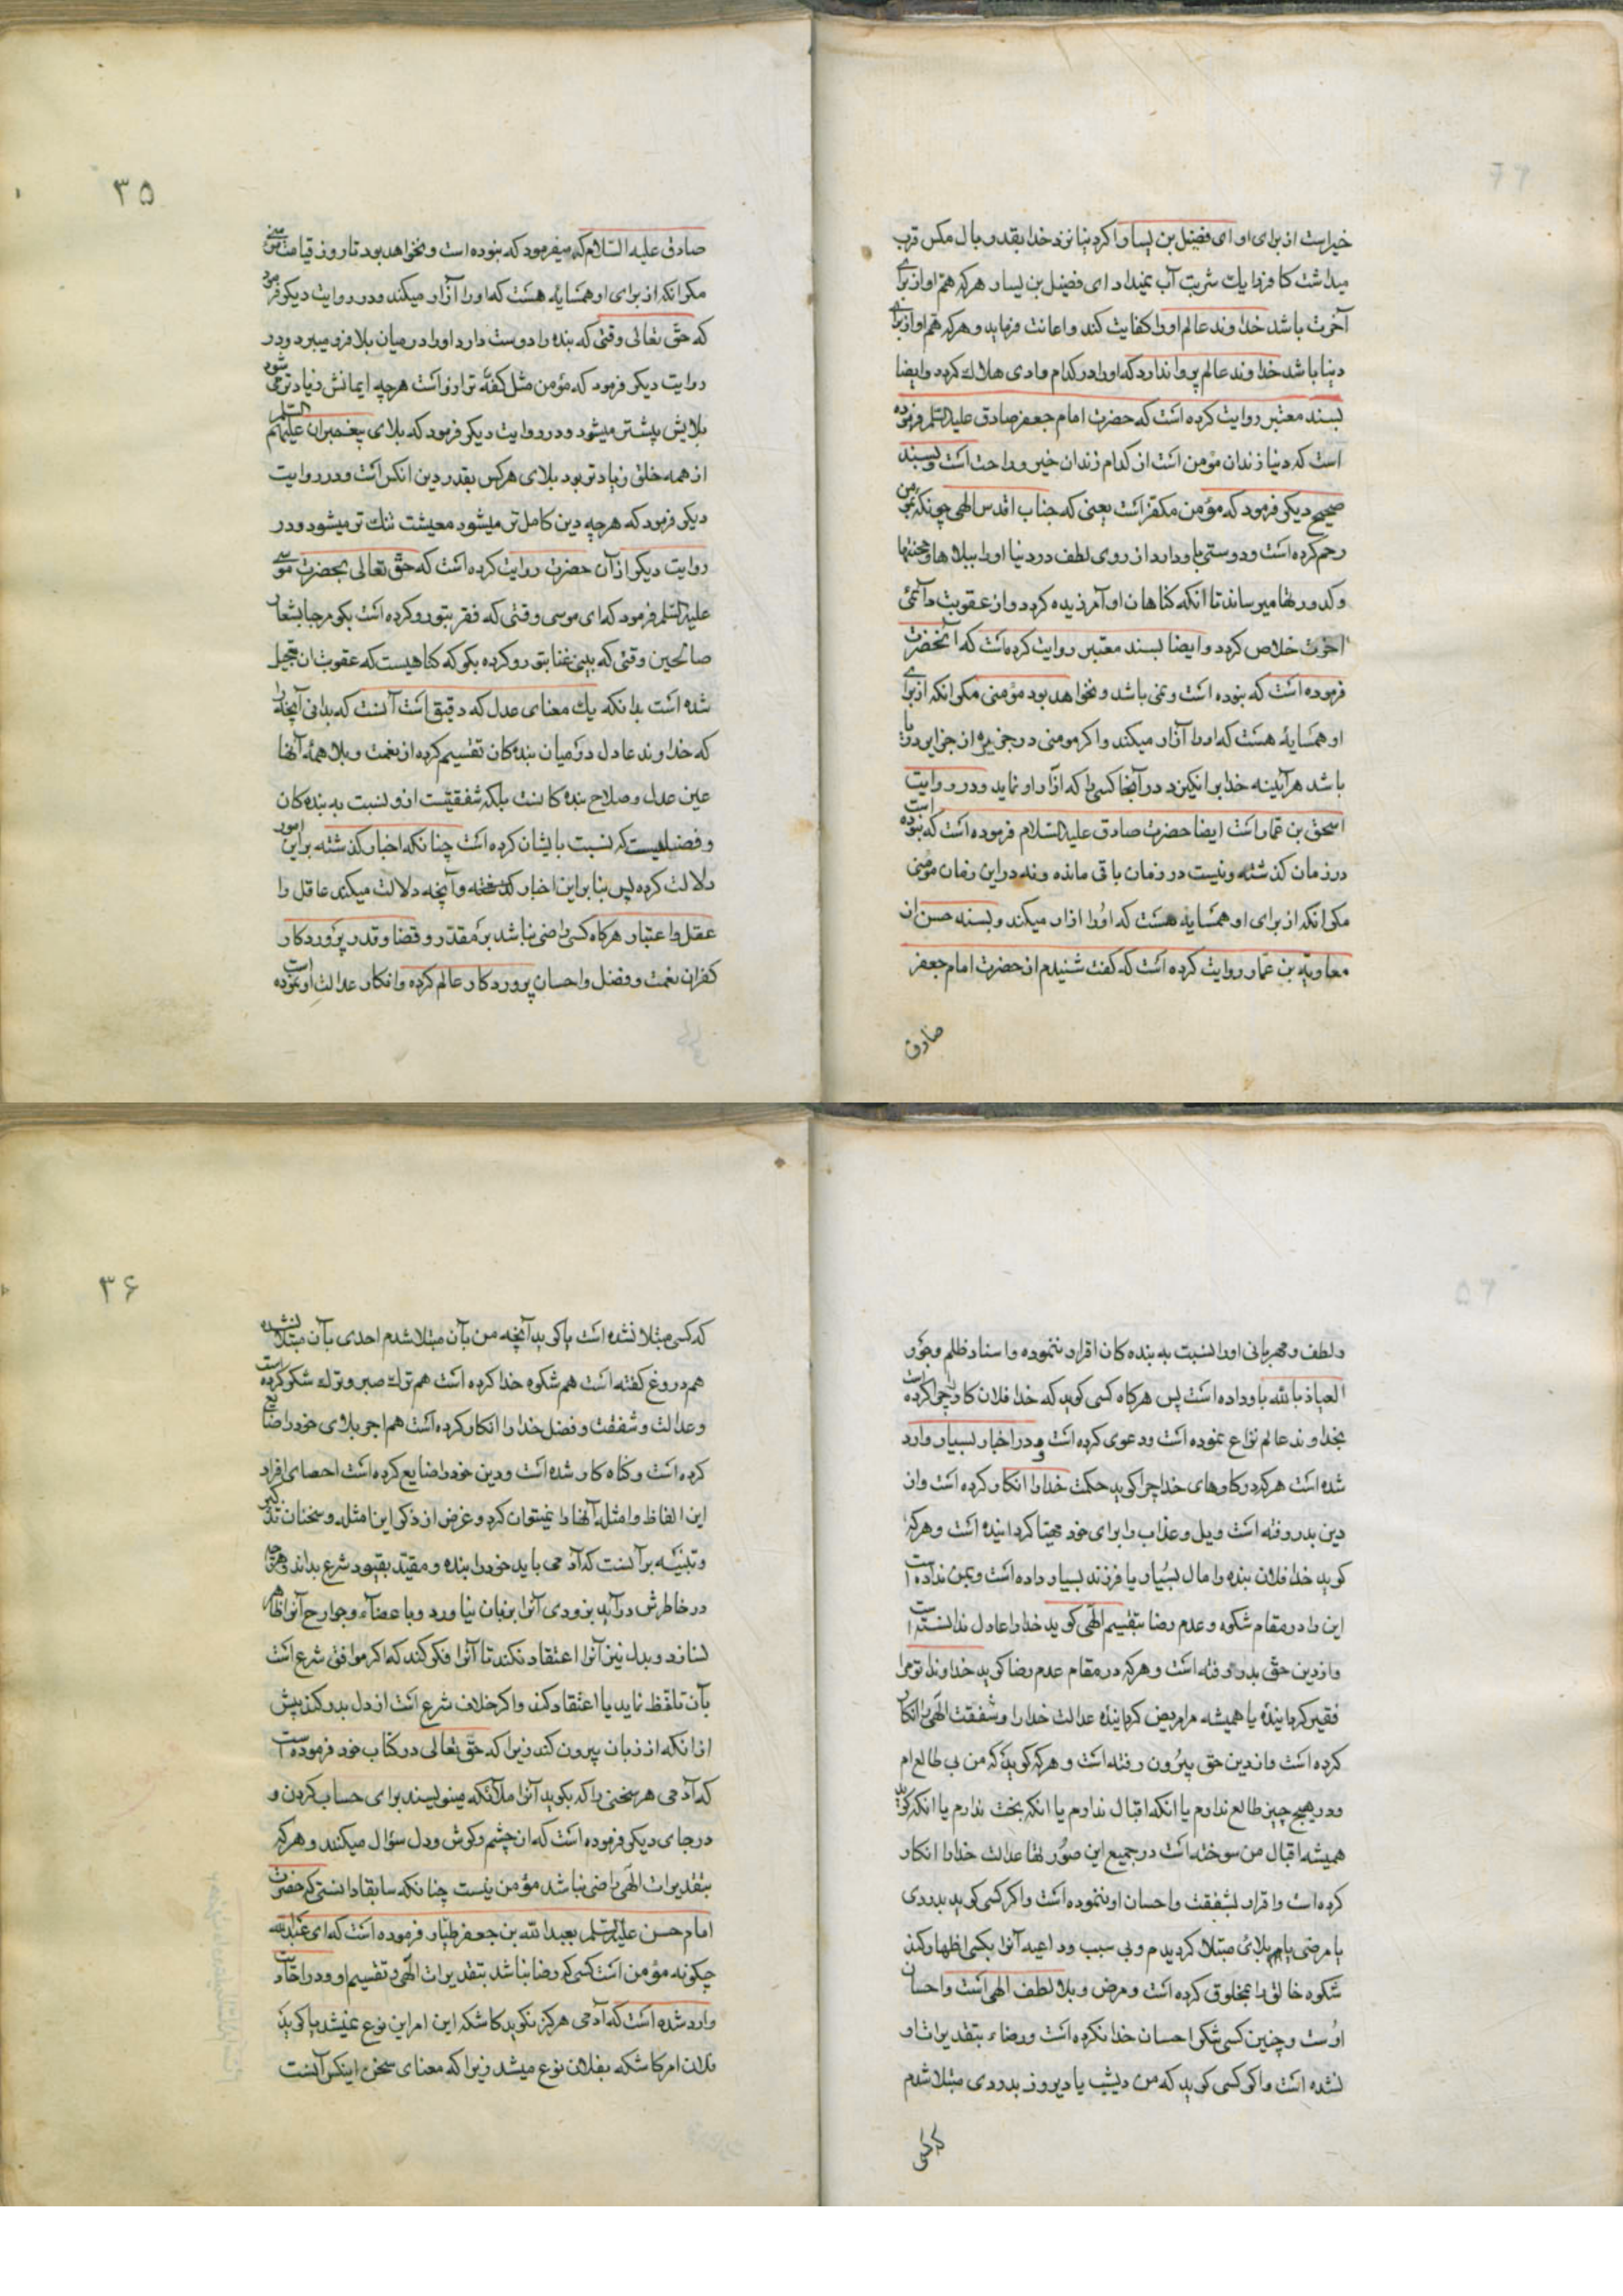 خیراست از برای او ای فضیل بن یسار اکر دنیا نزد خدا بقدر بال مکس قرب
میداشت کافر را یك شربت آب نمیداد ای فضیل بن یسار هرکه هم او از برای
آخرت باشد خداوند عالم او را کفایت کند و اعانت فرماید و هرکه هم او از برای
دنیا باشد خداوند عالم پروا ندارد که او را در کدام وادی هلاك کرد و ایضا
بسند معتبر روایت کرده است که حضرت امام جعفر صادق علیه السلم فرموده
است که دنیا زندان مؤمن است از کدام زندان خیر و راحت است و بسند
صحیح دیکر فرمود که مؤمن مکفر است یعنی که جناب اقدس الهی چونکه بمؤمن
رحم کرده است و دوستی باو دارد از روی لطف در دنیا او را ببلاها و محنتها
و کدورتها میرساند تا انکه کناهان او آمرزیده کردد و از عقوبت دائمی
اخرت خلاص کردد و ایضا بسند معتبر روایت کرده است که آنحضرت
فرموده است که نبوده است و نمی باشد و نخواهد بود مؤمنی مکر انکه از برای
او همسایهٔ هست که او را آزار میکند و اکر مومنی در جزیرهٔ از جزایر دریا
باشد هرآینه خدا بر انکیزد در آنجا کسی را که آزار او نماید و در روایت
اسحق بن عمار است ایضا حضرت صادق علیه السلام فرموده است که نبوده است
در زمان کذشته و نیست در زمان باقی مانده و نه در این زمان مؤمنی
مکر انکه از برای او همسایهٔ هست که او را ازار میکند و بسند حسن از
معاویة بن عمار روایت کرده است که کفت شنیدم از حضرت امام جعفر
صادق
۳۵
صادق علیه السلام که میفرمود که نبوده است و نخواهد بود تا روز قیامت مؤمنی
مکر انکه از برای او همسایهٔ هست که او را آزار میکند و در روایت دیکر فرمود
که حق تعالی وقتی که بنده را دوست دارد او را در میان بلا فرو میبرد و در
روایت دیکر فرمود که مؤمن مثل کفهٔ ترازو است هرچه ایمانش زیادتر می شود
بلایش بیشتر میشود و در روایت دیکر فرمود که بلای پیغمبران علیهم السلم
از همه خلق زیادتر بود بلای هرکس بقدر دین انکس است و در روایت
دیکر فرمود که هرچه دین کاملتر میشود معیشت تنك تر میشود و در
روایت دیکر از آن حضرت روایت کرده است که حق تعالی بحضرت موسی
علیه السلم فرمود که ای موسی وقتی که فقر بتو رو کرده است بکو مرحبا بشعار
صالحین وقتی که بینی غنا بتو رو کرده بکو که کناهیست که عقوبت ان تعجیل
شده است بدانکه یك معنای عدل که دقیق است آنست که بدانی آنچه را
که خداوند عادل در میان بنده کان تقسیم کرده از نعمت و بلا همهٔ آنها
عین عدل و صلاح بنده کانست بلکه شفقتیست از و نسبت به بنده کان
و فضلیست که نسبت بایشان کرده است چنانکه اخبار کذشته بر این امور
دلالت کرده پس بنا بر این اخبار کذشته و آنچه دلالت میکند عاقل را
عقل و اعتبار هرکاه کسی راضی نباشد بر مقدر و قضا و قدر پروردکار
کفران نعمت و فضل و احسان پروردکار عالم کرده و انکار عدالت او نموده است
و لطف و مهربانی او را نسبت به بنده کان اقرار ننموده و اسناد ظلم و جور
العیاذ بالله باو داده است پس هرکاه کسی کوید که خدا فلان کار را چرا کرده است
بخداوند عالم نزاع نموده است و دعوی کرده است و در اخبار بسیار وارد
شده است هرکه در کارهای خدا چرا کوید حکمت خدا را انکار کرده است و از
دین بدر رفته است و ویل و عذاب را برای خود مهیا کردانیده است و هرکه
کوید خدا فلان بنده را مال بسیار یا فرزند بسیار داده است و بمن نداده است
این را در مقام شکوه و عدم رضا بتقسیم الهی کوید خدا را عادل ندانسته است
و از دین حق بدر رفته است و هرکه در مقام عدم رضا کوید خداوند تو مرا
فقیر کردانیدهٔ یا همیشه مرا مریض کردانیدهٔ عدالت خدا را و شفقت الهی را انکار
کرده است و از دین حق بیرون رفته است و هرکه کوید که من بی طالع ام
و در هیچ چیز طالع ندارم یا انکه اقبال ندارم یا انکه بخت ندارم یا انکه کوید
همیشه اقبال من سوخته است در جمیع این صورتها عدالت خدا را انکار
کرده است و اقرار بشفقت و احسان او ننموده است و اکر کسی کوید بدردی
یا مرضی یا بلائی مبتلا کردیدم و بی سبب و داعیه آنرا بکسی اظهار کند
شکوه خالق را بمخلوق کرده است و مرض و بلا لطف الهی است و احسان
اوست و چنین کسی شکر احسان خدا نکرده است و رضاء بتقدیرات او
نشده است و اکر کسی کوید که من دیشب یا دیروز بدردی مبتلا شدم
که کسی
۳۶
که کسی مبتلا نشده است یا کوید آنچه من بآن مبتلا شدم احدی بآن مبتلا نشده
هم دروغ کفته است هم شکوه خدا کرده است هم ترك صبر و ترك شکر کرده است
و عدالت و شفقت و فضل خدا را انکار کرده است هم اجر بلای خود را ضایع
کرده است و کناه کار شده است و دین خود را ضایع کرده است احصای افراد
این الفاظ و امثل آنها را نمیتوان کرد و غرض از ذکر این امثله و سخنان تذکیر
و تنبیه بر آنست که آدمی باید خود را بنده و مقید بقیود شرع بداند و هرچه
در خاطرش در آید بزودی آنرا بزبان نیاورد و با عضاء و جوارح آنرا ظاهر
نسازد و بدل نیز آنرا اعتقاد نکند تا آنرا فکر کند که اکر موافق شرع است
بآن تلفظ نماید یا اعتقاد کند و اکر خلاف شرع است از دل بدر کند پیش
از انکه از زبان بیرون کند زیرا که حق تعالی در کتاب خود فرموده است
که آدمی هر سخنی را که بکوید آنرا ملائکه مینویسند برای حساب کردن و
در جای دیکر فرموده است که از چشم و کوش و دل سؤال میکنند و هرکه
بتقدیرات الهی راضی نباشد مؤمن نیست چنانکه سابقا دانستی که حضرت
امام حسن علیه السلم بعبد الله بن جعفر طیار فرموده است که ای عبد الله
چکونه مؤمن است کسی که رضا نباشد بتقدیرات الهی و تقسیم او و در احادیث
وارد شده است که آدمی هرکز نکوید کاشکه این امر این نوع نمیشد یا کوید
فلان امر کاشکه بفلان نوع میشد زیرا که معنای سخن اینکس آنست